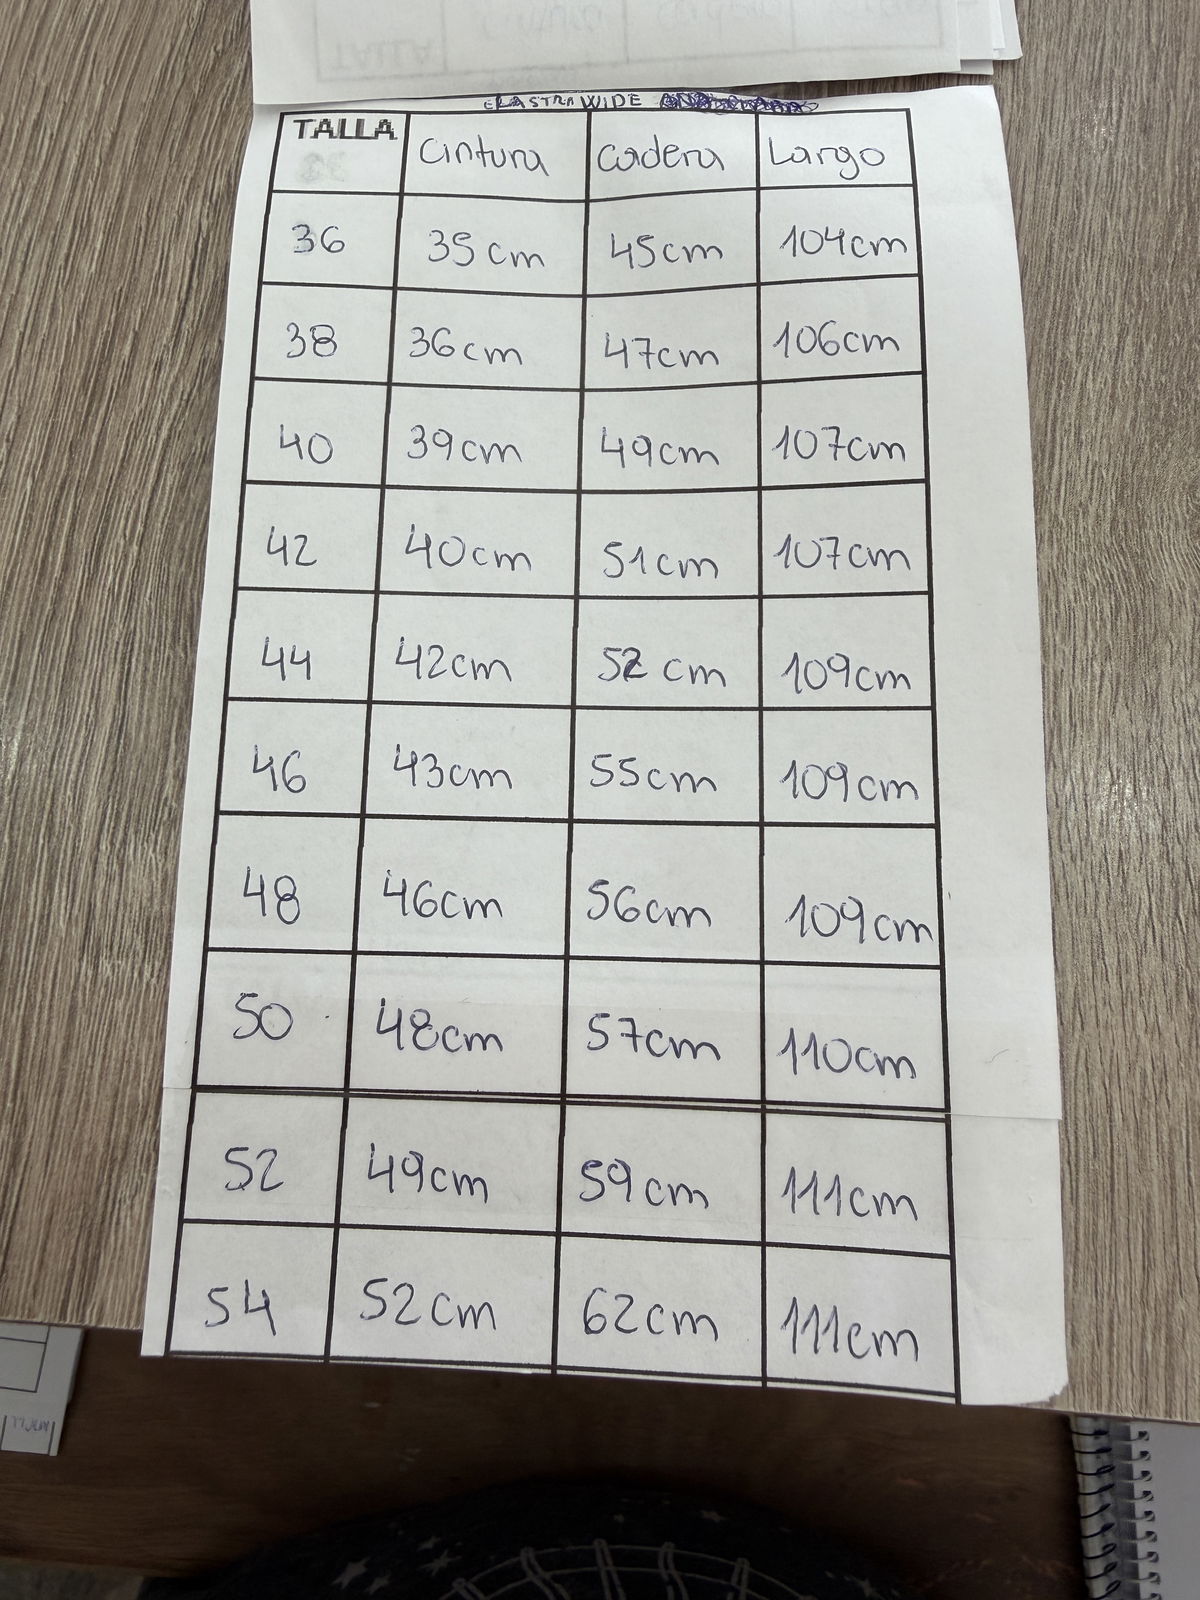 ELASTRA WIDE
TALLA Cintura Cadera Largo
36 35 cm 45cm 104cm
38 36cm 47cm 106cm
40 39cm 49cm 107cm
42 40cm 51cm 107cm
44 42cm 52 cm 109cm
46 43cm 55cm 109cm
48 46cm 56cm 109cm
50 48cm 57cm 110cm
52 49cm 59cm 111cm
54 52cm 62cm 111cm